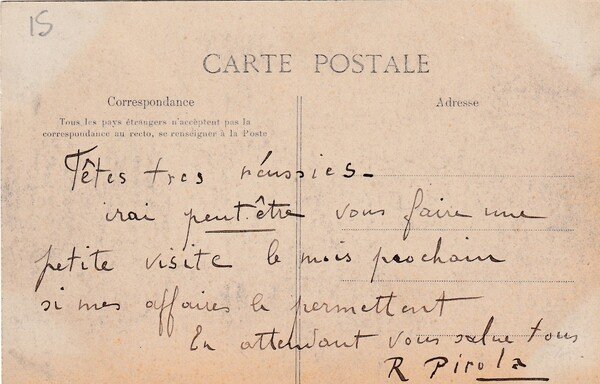 15
CARTE POSTALE
Correspondance
Adresse
Tous les pays étrangers n'acceptent pas la
correspondance au recto, se renseigner à la Poste
Fêtes tres réussies -
irai peut.être vous faire une
petite visite le mois prochain
si mes affaires le permettent
En attendant vous salue tous
R Pirola